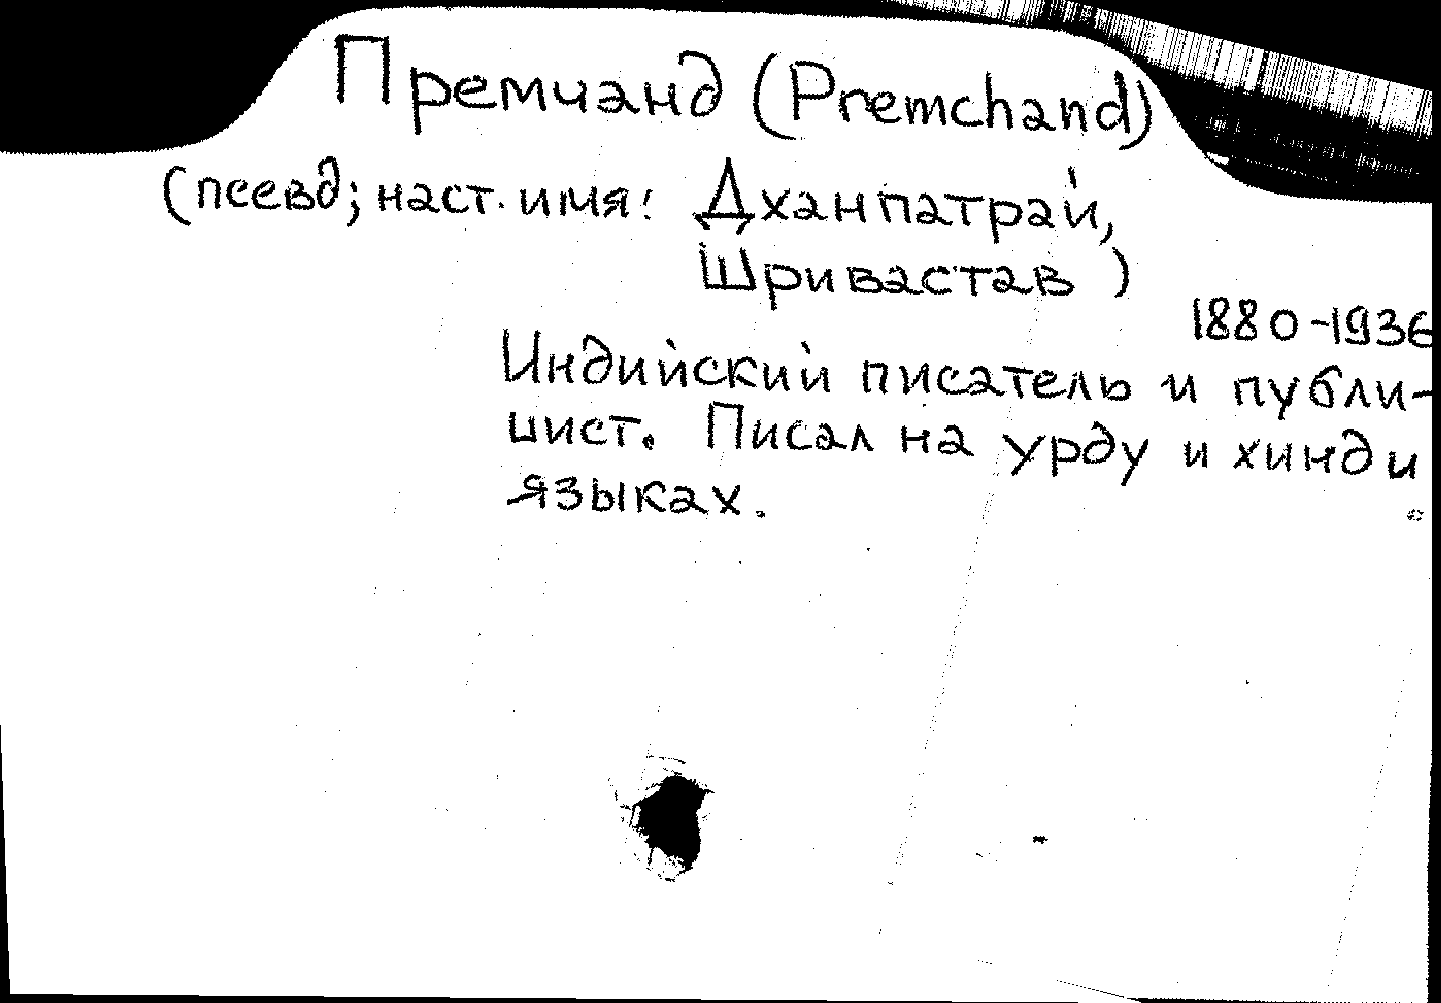 Премчанд (Premchand)
(псевд; наст. имя: Дханпатрай,
Шривастав)
1880-1936
Индийский писатель и публи-
цист. Писал на урду и хинди
языках.